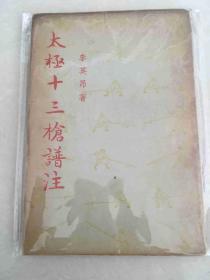 太極十三槍譜注
李英昂著